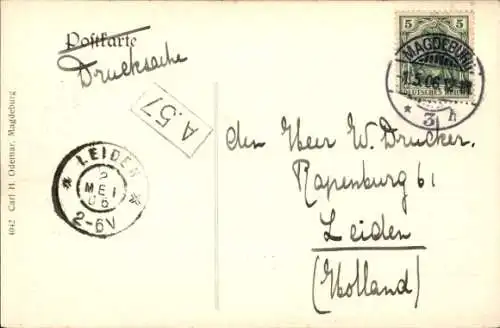 Postkarte
Drucksache
5 5
DEUTSCHES REICH
MAGDEBURG
1.5.06.12
* 3 h
A.57
LEIDEN
2
MEI
06
2-6V
den Heer W. Drucker.
Rapenburg 61
Leiden
(Holland)
4042 Carl H. Odemar, Magdeburg